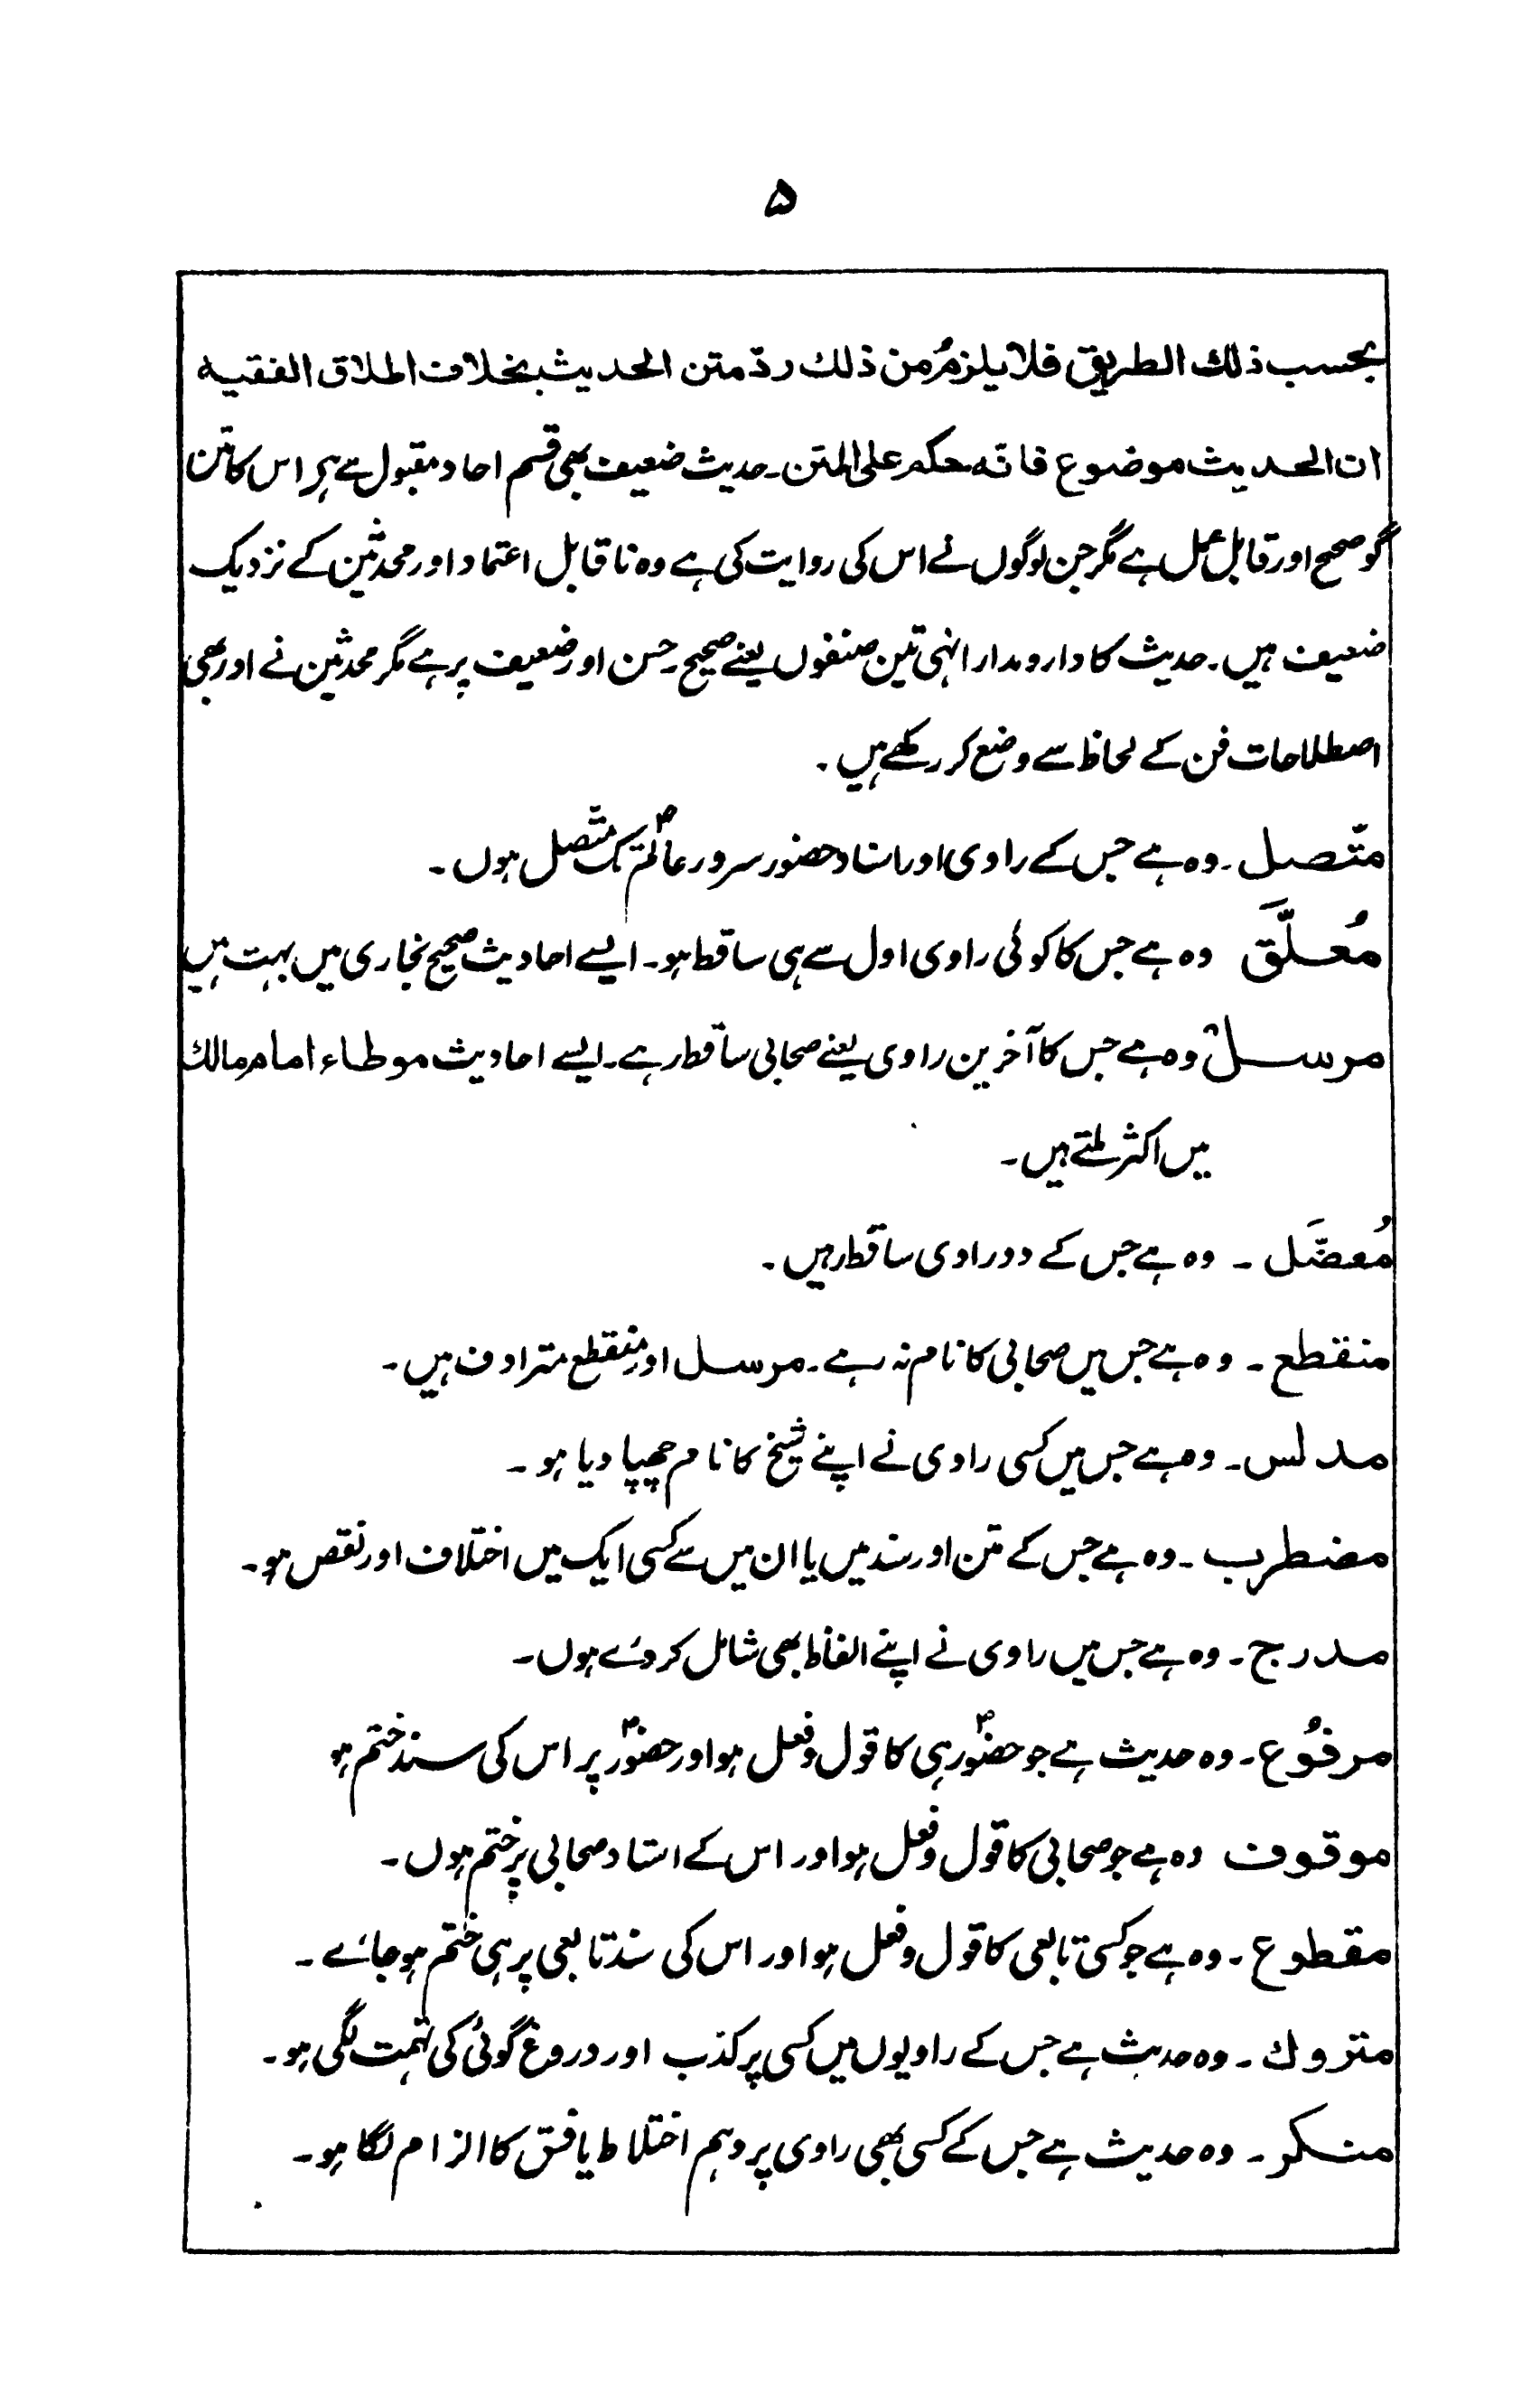 ۵
بحسب ذلك الطريق فلا يلزمُ من ذلك ردّ متن الحديث بخلاف اطلاق الفقيه
ان الحديث موضوع فانّه حكم على المتن۔ حدیث ضعیف بھی قسم احاد مقبول سے ہر اس کا متن
گو صحیح اور قابل عمل ہے مگر جن لوگوں نے اس کی روایت کی ہے وہ نا قابل اعتماد اور محدثین کے نزدیک
ضعیف ہیں۔ حدیث کا دارومدار انہی تین صنفوں یعنے صحیح۔ حسن اور ضعیف پر ہے مگر محدثین نے اور بھی
اصطلاحات فن کے لحاظ سے وضع کر رکھے ہیں۔
متّصل۔ وہ ہے جس کے راوی اور اسناد حضور سرور عالمؐ تک متّصل ہوں۔
مُعلَّق وہ ہے جس کا کوئی راوی اول سے ہی ساقط ہو۔ ایسے احادیث صحیح بخاری میں بہت ہیں
مرسل وہ ہے جس کا آخرین راوی یعنے صحابی ساقط رہے۔ ایسے احادیث موطاء امام مالك
میں اکثر ملتے ہیں۔
مُعضَل ۔ وہ ہے جس کے دو راوی ساقط رہیں۔
منقطع۔ وہ ہے جس میں صحابی کا نام نہ رہے۔ مرسل اور منقطع مترادف ہیں۔
مدلس۔ وہ ہے جس میں کسی راوی نے اپنے شیخ کا نام چھپا دیا ہو۔
مضطرب۔ وہ ہے جس کے متن اور سند میں یا ان میں سے کسی ایک میں اختلاف اور نقص ہو۔
مدرج۔ وہ ہے جس میں راوی نے اپنے الفاظ بھی شامل کر دئے ہوں۔
مرفُوع۔ وہ حدیث ہے جو حضورؐ ہی کا قول و فعل ہو اور حضورؐ پر اس کی سند ختم ہو
موقوف وہ ہے جو صحابی کا قول و فعل ہو اور اس کے اسناد صحابی پر ختم ہوں۔
مقطوع۔ وہ ہے جو کسی تابعی کا قول و فعل ہو اور اس کی سند تابعی پر ہی ختم ہو جائے۔
متروك۔ وہ حدیث ہے جس کے راویوں میں کسی پر کذب اور دروغ گوئی کی تہمت لگی ہو۔
منکر۔ وہ حدیث ہے جس کے کسی بھی راوی پر وہم اختلاط یا فسق کا الزام لگا ہو۔